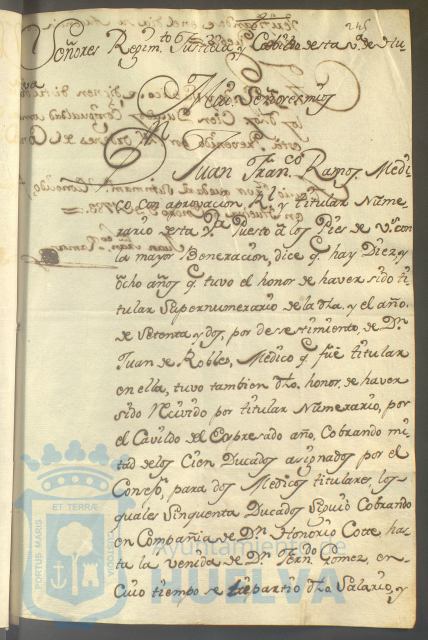 246
Señores Regim.to Justicia y Cavildo de esta V.a de Hu-
elva
Mui Señores mios
Juan Fran.co Ramos, Medi-
co con aprovacion R.l y titular Nume-
rario de esta V.a Puesto a los Pies de V. con
la mayor Veneracion, dice q. hay Diez, y
ocho años q. tuvo el honor de haver sido ti-
tular Supernumerario de la d.ha y el año.
de Setenta y dos, por desestimiento, de D.n
Juan de Robles, Medico q. fue titular
en ella, tuvo tambien d.ho honor, de haver
sido Recivido por titular Numerario, por
el Cavildo del Expresado año, Cobrando mi-
tad de los Cien Ducados asignados por el
Consejo, para dos Medicos titulares, los
quales Sinquenta Ducados Siguio Cobrando
en Compañia de D.n Honorio Cotte, has-
ta la venida de D.n Fern.do Gomez, en-
Cuio tiempo se repartio d.ho Salario, y
PORTUS MARIS ET TERRAE CUSTODIA
Ayuntamiento de
HUELVA